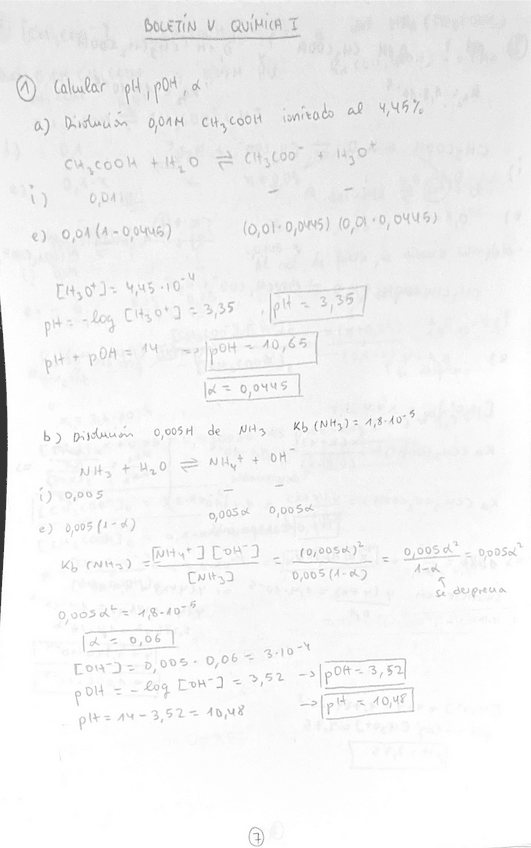 BOLETÍN V QUÍMICA I
① Calcular pH, pOH, α.
a) Disolución 0,01M CH₃COOH ionizado al 4,45%
CH₃COOH + H₂O ⇌ CH₃COO⁻ + H₃O⁺
i) 0,01 - -
e) 0,01(1-0,0445) (0,01·0,0445) (0,01·0,0445)
[H₃O⁺] = 4,45·10⁻⁴
pH = -log [H₃O⁺] = 3,35 pH = 3,35
pH + pOH = 14 → pOH = 10,65
α = 0,0445
b) Disolución 0,005M de NH₃ Kb(NH₃) = 1,8·10⁻⁵
NH₃ + H₂O ⇌ NH₄⁺ + OH⁻
i) 0,005 - -
e) 0,005(1-α) 0,005α 0,005α
Kb(NH₃) = [NH₄⁺][OH⁻] / [NH₃] = (0,005α)² / 0,005(1-α) = 0,005α² / 1-α = 0,005α²
se desprecia
0,005α² = 1,8·10⁻⁵
α = 0,06
[OH⁻] = 0,005 · 0,06 = 3·10⁻⁴
pOH = -log [OH⁻] = 3,52 → pOH = 3,52
pH = 14 - 3,52 = 10,48 → pH = 10,48
⑦